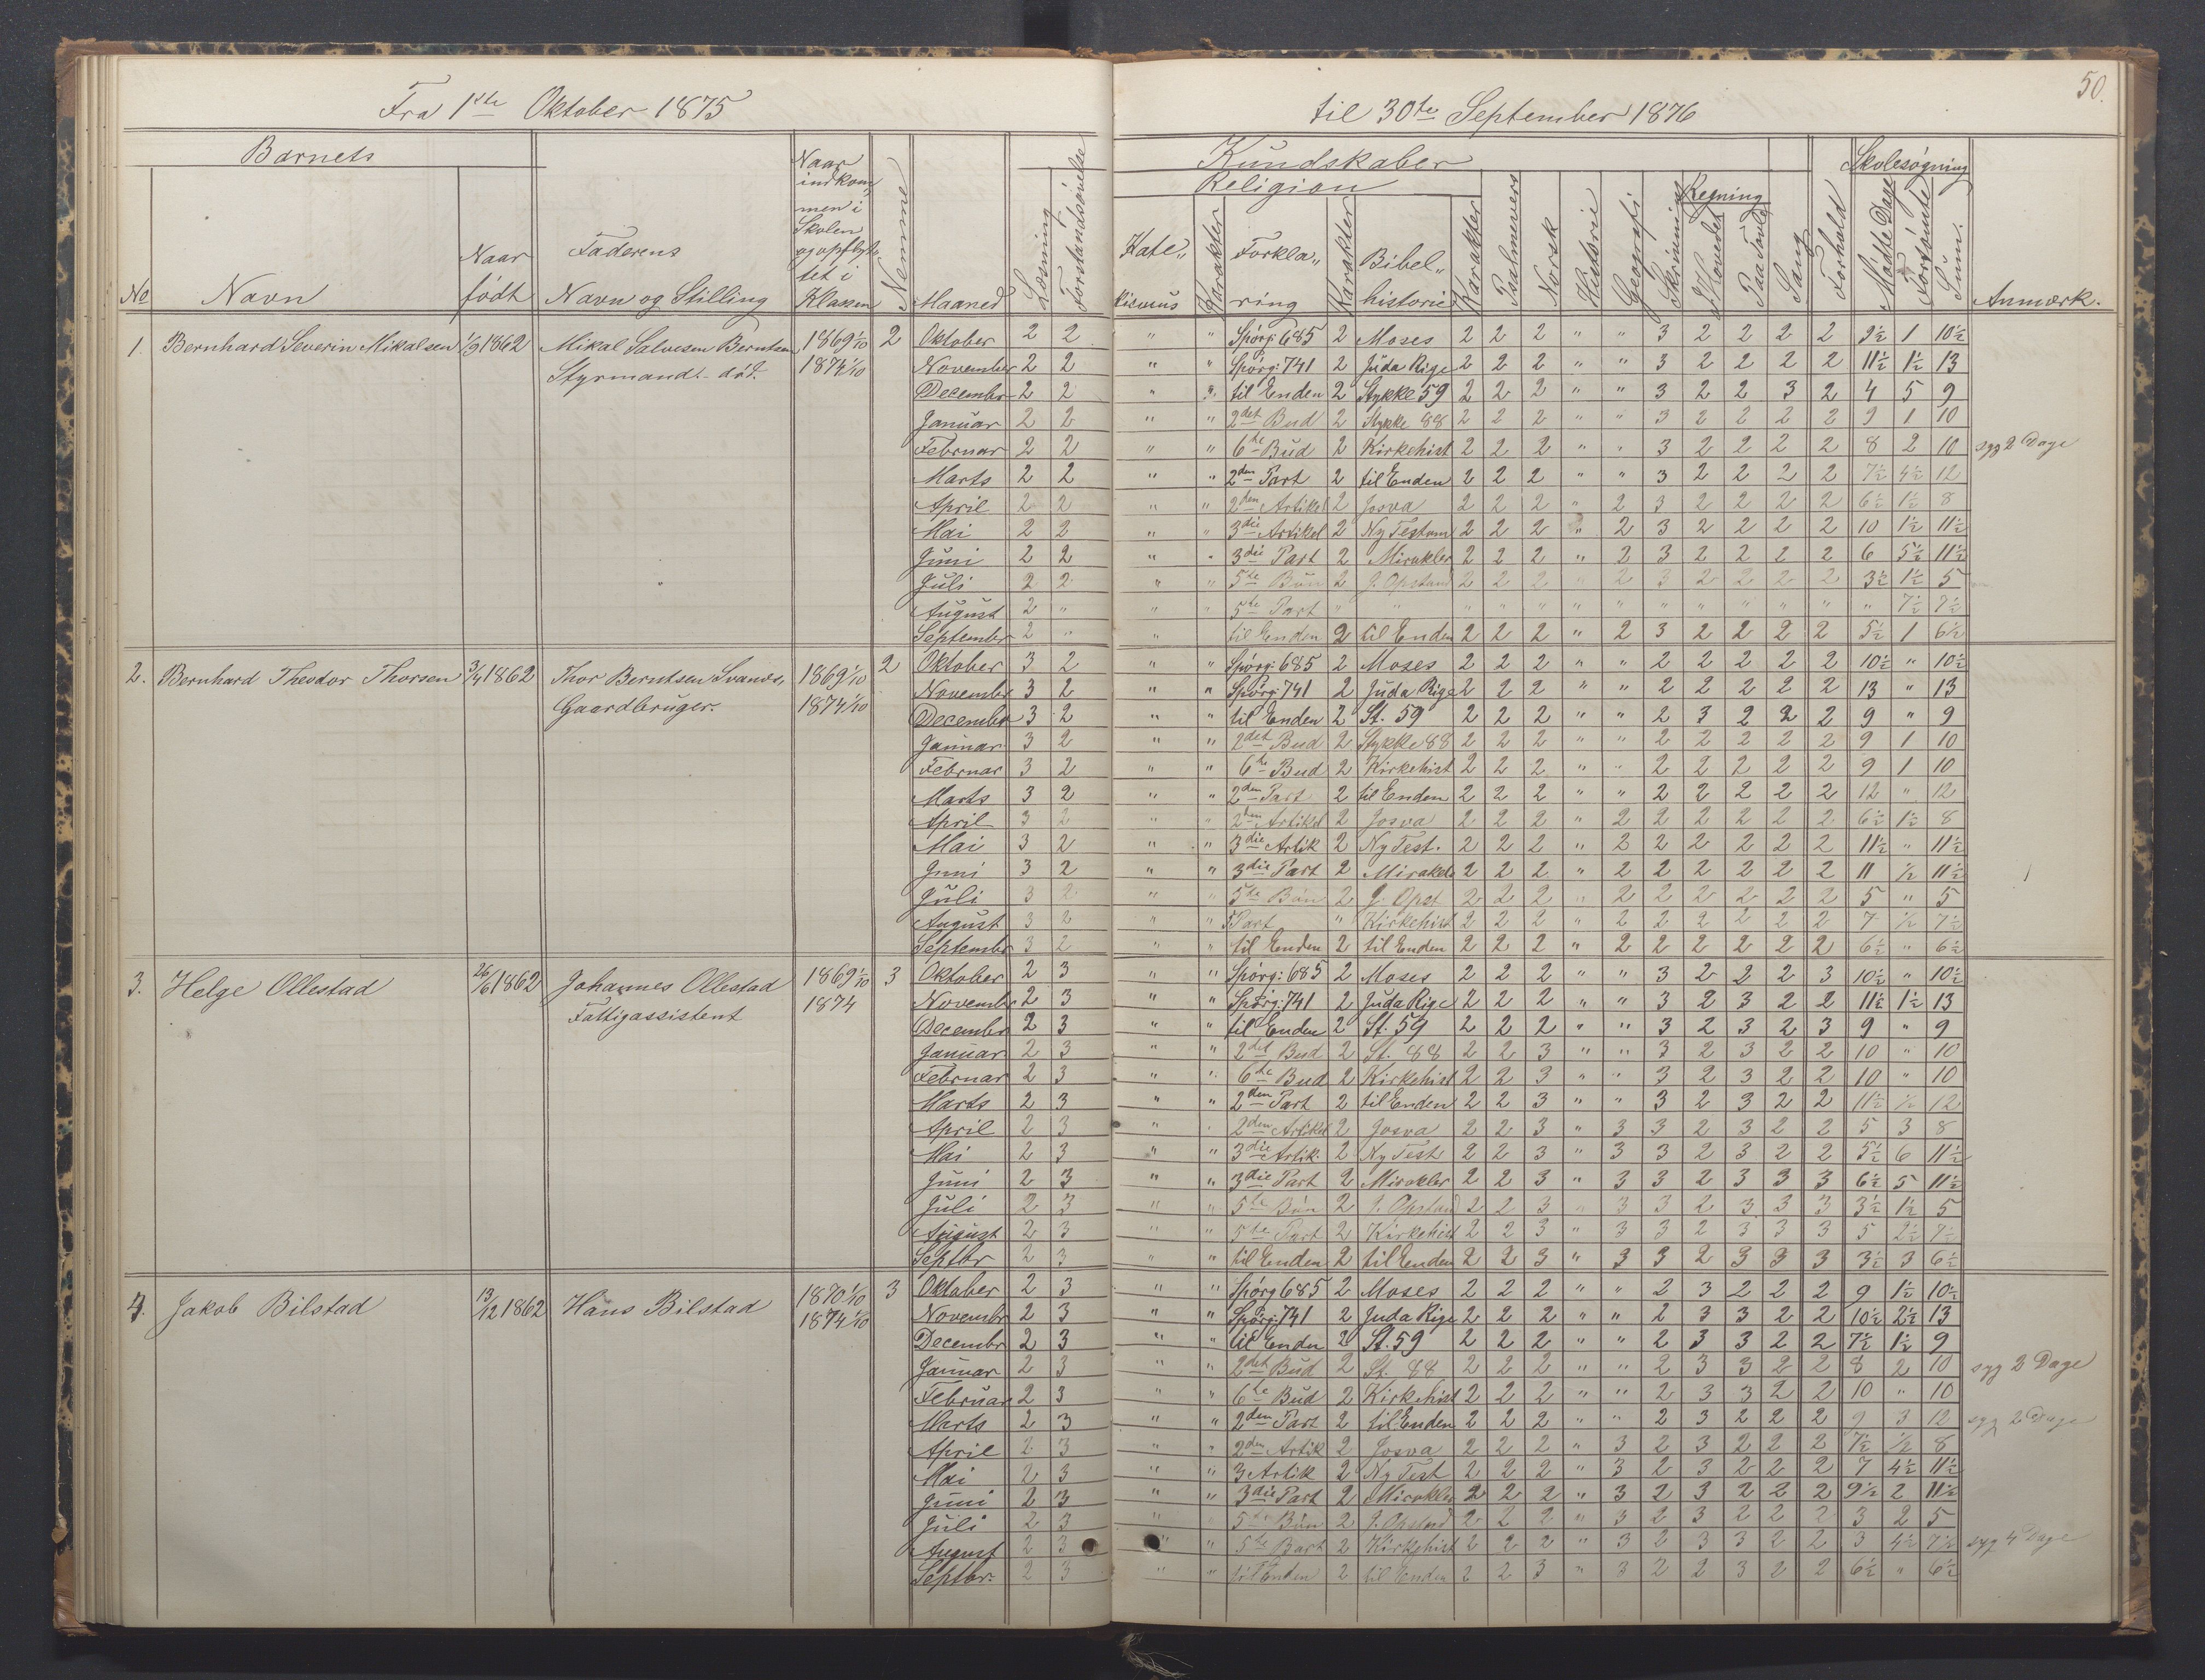 50.
Fra 1ste Oktober 1875 til 30te September 1876
Barnets
Kundskaber
Religion
Regning
Skolesøgning
No Navn Naar født Faderens Navn og Stilling Naar indkommen i Skolen og opflyttet i Klassen Nemme Maaned Læsning Forstandsøvelse Katekismus Karakter Forklaring Karakter Bibelhistorie Karakter Psalmevers Norsk Historie Geografi Skrivning I Hovedet Paa Tavle Sang Forhold Mødte Dage Forsømte Sum. Anmærk.
1. Bernhard Severin Mikalsen 1/3 1862 Mikal Salvesen Berntsen 1869 1/10 2 Oktober 2 2 " " Spørg: 685 2 Moses 2 2 2 " " 3 2 2 2 2 9½ 1 10½
Styrmand 1874 1/10 November 2 2 " " Spørg: 741 2 Juda Rige 2 2 2 " " 3 2 2 2 2 11½ 1½ 13
Decembr 2 2 " " til Enden 2 Stykke 59 2 2 2 " " 3 2 2 3 2 4 5 9
Januar 2 2 " " 2det Bud 2 Stykke 88 2 2 2 " " 3 2 2 2 2 9 1 10
Februar 2 2 " " 6te Bud 2 Kirkehist 2 2 2 " " 3 2 2 2 2 8 2 10 syg 2 Dage
Marts 2 2 " " 2den Part 2 til Enden 2 2 2 " " 3 2 2 2 2 7½ 4½ 12
April 2 2 " " 2den Artikel 2 Josva 2 2 2 " 2 3 2 2 2 2 6½ 1½ 8
Mai 2 2 " " 3die Artikel 2 Ny Testam 2 2 2 " 2 3 2 2 2 2 10 1½ 11½
Juni 2 2 " " 3die Part 2 Mirakler 2 2 2 " 2 3 2 2 2 2 6 5½ 11½
Juli 2 2 " " 5te Bøn 2 J. Opstand 2 2 2 " 2 3 2 2 2 2 3½ 1½ 5
August 2 " " " 5te Part " " " " " " " " " " " " " 7½ 7½
Septembr 2 " " til Enden 2 til Enden 2 2 2 " 2 3 2 2 2 2 5½ 1 6½
2. Bernhard Theodor Thorsen 3/4 1862 Thor Berntsen Svanes, 1869 1/10 2 Oktober 3 2 " " Spørg: 685 2 Moses 2 2 2 " " 2 2 2 2 2 10½ " 10½
Gaardbruger. 1874 1/10 Novembr 3 2 " " Spørg: 741 2 Juda Rige 2 2 2 " " 2 2 2 2 2 13 " 13
Decembr 3 2 " " til Enden 2 St. 59 2 2 2 " " 2 3 2 2 2 9 " 9
Januar 3 2 " " 2det Bud 2 Stykke 88 2 2 2 " " 2 2 2 2 2 9 1 10
Februar 3 2 " " 6te Bud 2 Kirkehist 2 2 2 " " 2 2 2 2 2 9 1 10
Marts 3 2 " " 2den Part 2 til Enden 2 2 2 " " 2 2 2 2 2 12 " 12
April 3 2 " " 2den Artikel 2 Josva 2 2 2 " 2 2 2 2 2 2 6½ 1½ 8
Mai 3 2 " " 3die Artik 2 Ny Test. 2 2 2 " 2 2 2 2 2 2 11½ " 11½
Juni 3 2 " " 3die Part 2 Mirakele 2 2 2 " 2 2 2 2 2 2 11 ½ 11½
Juli 3 2 " " 5te Bøn 2 J. Opst 2 2 2 " 2 2 2 2 2 2 5 " 5
August 3 2 " " 5 Part " Kirkehist 2 2 2 " 2 2 2 2 2 2 7 ½ 7½
Septembr 3 2 " " til Enden 2 til Enden 2 2 2 " 2 2 2 2 2 2 6½ " 6½
3. Helge Ollestad 26/6 1862 Johannes Ollestad 1869 1/10 3 Oktober 2 3 " " Spørg: 685 2 Moses 2 2 2 " " 3 2 2 2 3 10½ " 10½
Fattigassistent 1874 Novembr 2 3 " " Spørg: 741 2 Juda Rige 2 2 2 " " 3 2 3 2 2 11½ 1½ 13
Decembr 2 3 " " til Enden 2 St. 59 2 2 2 " " 3 2 3 2 3 9 " 9
Januar 2 3 " " 2det Bud 2 St. 88 2 2 3 " " 3 2 3 2 2 10 " 10
Februar 2 3 " " 6te Bud 2 Kirkehist 2 2 3 " " 3 2 3 2 2 10 " 10
Marts 2 3 " " 2den Part 2 til Enden 2 2 3 " " 3 2 3 2 2 11½ ½ 12
April 2 3 " " 2den Artikel 2 Josva 2 2 3 " 3 3 2 3 2 2 5 3 8
Mai 2 3 " " 3die Artik. 2 Ny Test 2 2 3 " 3 3 2 3 2 2 5½ 6 11½
Juni 2 3 " " 3die Part 2 Mirakler 2 2 3 " 3 3 2 3 3 3 6½ 5 11½
Juli 2 3 " " 5te Bøn 2 J. Opstand 2 2 3 " 3 3 2 3 3 3 3½ 1½ 5
August 2 3 " " 5te Part 2 Kirkehist 2 2 3 " 3 3 2 3 3 3 5 2½ 7½
Septbr 2 3 " " til Enden 2 til Enden 2 2 3 " 3 3 2 3 3 3 3½ 3 6½
4. Jakob Bilstad 13/12 1862 Hans Bilstad 1870 1/10 3 Oktober 2 3 " " Spørg 685 2 Moses 2 2 2 " " 2 3 2 2 2 9 1½ 10½
1874 1/10 Novembr 2 3 " " Spørg: 741 2 Juda Rige 2 2 2 " " 2 3 3 2 2 10½ 2½ 13
Decembr 2 3 " " til Enden 2 St. 59 2 2 2 " " 2 3 3 2 2 7½ 1½ 9
Januar 2 3 " " 2det Bud 2 St. 88 2 2 2 " " 2 3 3 2 2 8 2 10 syg 2 Dage
Februar 2 3 " " 6te Bud 2 Kirkehist 2 2 2 " " 2 3 3 2 2 10 " 10
Marts 2 3 " " 2den Part 2 til Enden 2 2 2 " " 2 3 2 2 2 9 3 12 syg 2 Dage
April 2 3 " " 2den Artik 2 Josva 2 2 2 " 3 2 3 2 2 2 7½ ½ 8
Mai 2 3 " " 3 Artik 2 Ny Test 2 2 2 " 3 2 3 2 2 2 7 4½ 11½
Juni 2 3 " " 3die Part 2 Mirakler 2 2 2 " 3 2 3 2 2 2 9½ 2 11½
Juli 2 3 " " 5te Bøn 2 J. Opstand 2 2 2 " 3 2 3 2 2 2 3 2 5
August 2 3 " " 5te Part 2 Kirkehist 2 2 2 " 3 2 3 3 2 2 3 4½ 7½ syg 4 Dage
Septbr. 2 3 " " til Enden 2 til Enden 2 2 3 " 3 2 2 3 2 2 6½ " 6½